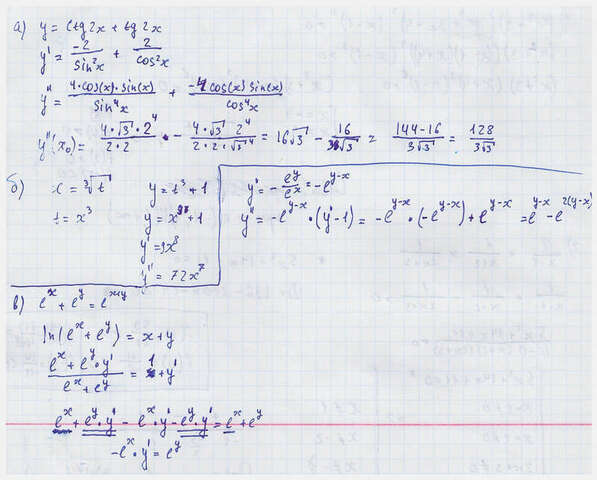 а) y = ctg2x + tg2x
y' = -2/sin²x + 2/cos²x
y'' = 4·cos(x)·sin(x)/sin⁴x + -4cos(x)sin(x)/cos⁴x
y''(x₀) = 4·√3·2⁴/2·2 - 4·√3·2⁴/2·2·√3⁴ = 16√3 - 16/3√3 = 144-16/3√3 = 128/3√3
б) x = ³√t y = t³+1
t = x³ y = x⁹+1
y' = 9x⁸
y'' = 72x⁷
y' = -e^y/e^x = -e^(y-x)
y'' = -e^(y-x)·(y'-1) = -e^(y-x)·(-e^(y-x)) + e^(y-x) = e^(y-x) - e^(2(y-x))
в) e^x + e^y = e^(x+y)
ln(e^x + e^y) = x+y
e^x + e^y·y'/e^x + e^y = 1 + y'
e^x + e^y·y' - e^x·y' - e^y·y' = e^x + e^y
-e^x·y' = e^y